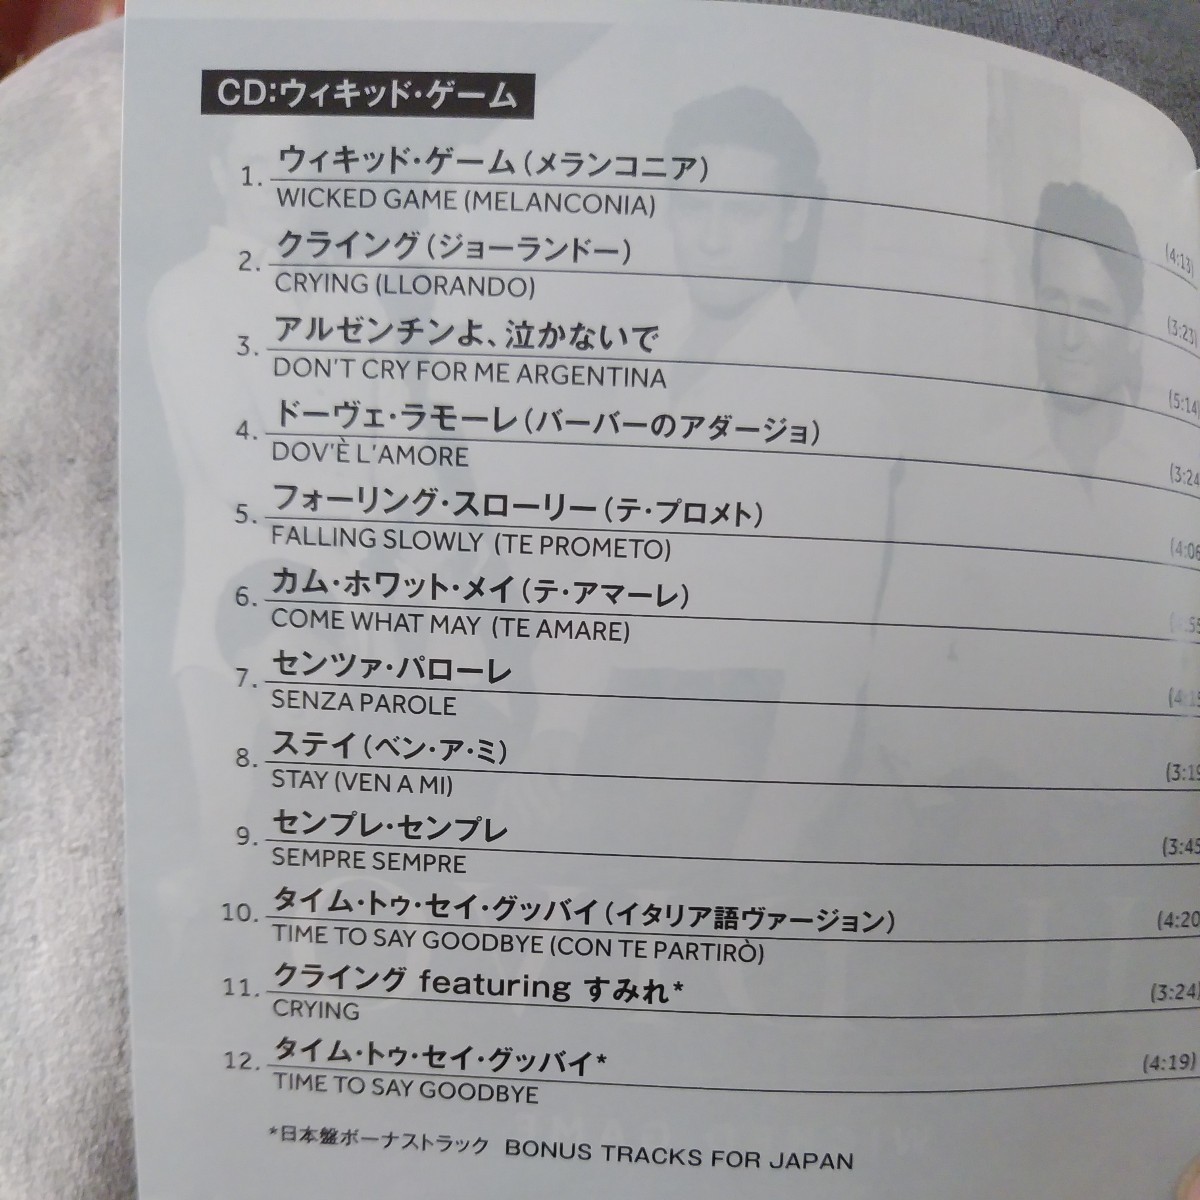 CD:ウィキッド・ゲーム
1. ウィキッド・ゲーム(メランコニア)
WICKED GAME (MELANCONIA)
(4:13)
2. クライング(ジョーランドー)
CRYING (LLORANDO)
(3:23)
3. アルゼンチンよ、泣かないで
DON'T CRY FOR ME ARGENTINA
(5:14
4. ドーヴェ・ラモーレ(バーバーのアダージョ)
DOV'È L'AMORE
(3:24
5. フォーリング・スローリー(テ・プロメト)
FALLING SLOWLY (TE PROMETO)
(4:06
6. カム・ホワット・メイ(テ・アマーレ)
COME WHAT MAY (TE AMARE)
7. センツァ・パローレ
SENZA PAROLE
8. ステイ(ベン・ア・ミ)
STAY (VEN A MI)
(3:19
9. センプレ・センプレ
SEMPRE SEMPRE
(3:45
10. タイム・トゥ・セイ・グッバイ(イタリア語ヴァージョン)
TIME TO SAY GOODBYE (CON TE PARTIRÒ)
(4:20
11. クライング featuring すみれ*
CRYING
(3:24)
12. タイム・トゥ・セイ・グッバイ*
TIME TO SAY GOODBYE
(4:19)
*日本盤ボーナストラック BONUS TRACKS FOR JAPAN